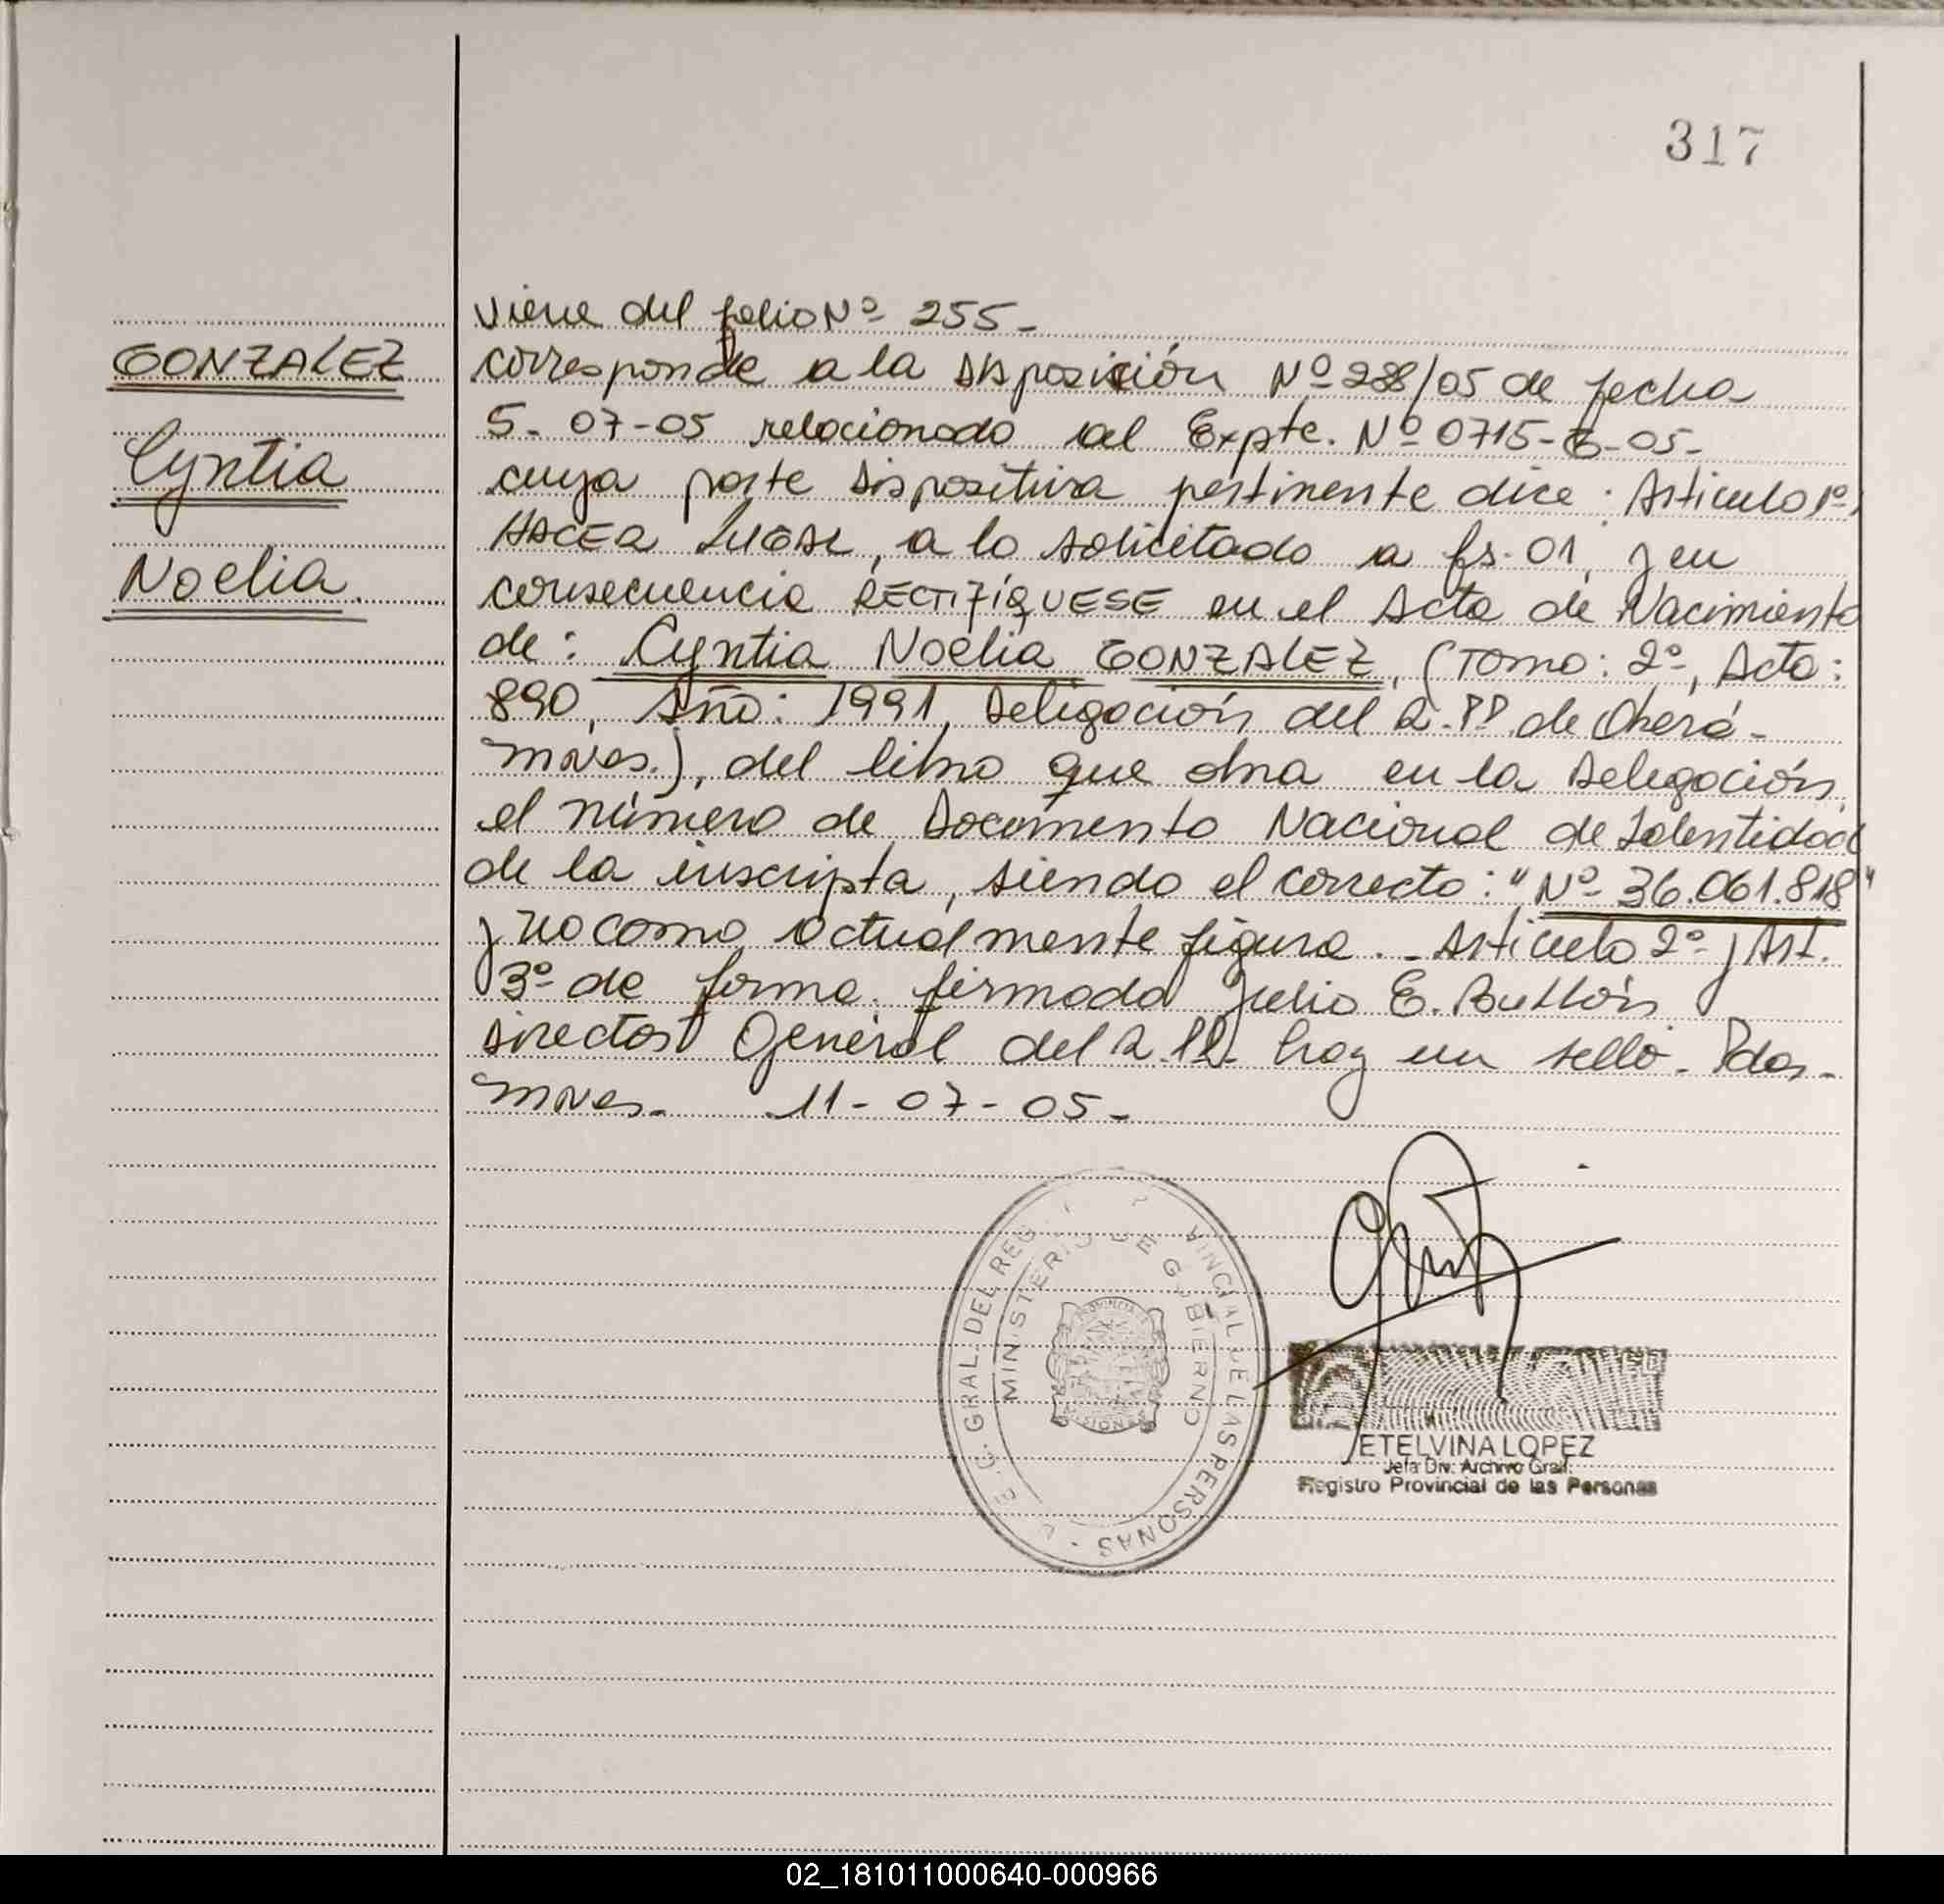 317
viene del folio Nº 255-
GONZALEZ
corresponde a la Disposición Nº 288/05 de fecha
5-07-05 relacionado al Expte. Nº 0715-G-05-
Cyntia
cuya parte dispositiva pertinente dice: Articulo 1º)
HACER LUGAR, a lo solicitado a fs. 01, y en
Noelia.
consecuencia RECTIFÍQUESE en el Acta de Nacimiento
de: Cyntia Noelia GONZALEZ, (Tomo: 2º, Acta:
890, Año: 1991, Delegación del R.PP. de Oberá-
Mnes.), del libro que obra en la Delegación,
el número de Documento Nacional de Identidad
de la inscripta, siendo el correcto: "Nº 36.061.818"
y no como actualmente figura.- Articulo 2º y Art.
3º de forma. firmado Julio E.
Director General del R.PP. hay un sello- Pdas-
Mnes- 11-07-05-
GRAL. DEL REG
VINCIAL DE LAS PERSONAS
MINISTERIO DE GOBIERNO
PROVINCIA
MISIONES
ETELVINA LOPEZ
Jefa Div. Archivo Gral.
Registro Provincial de las Personas
02_181011000640-000966